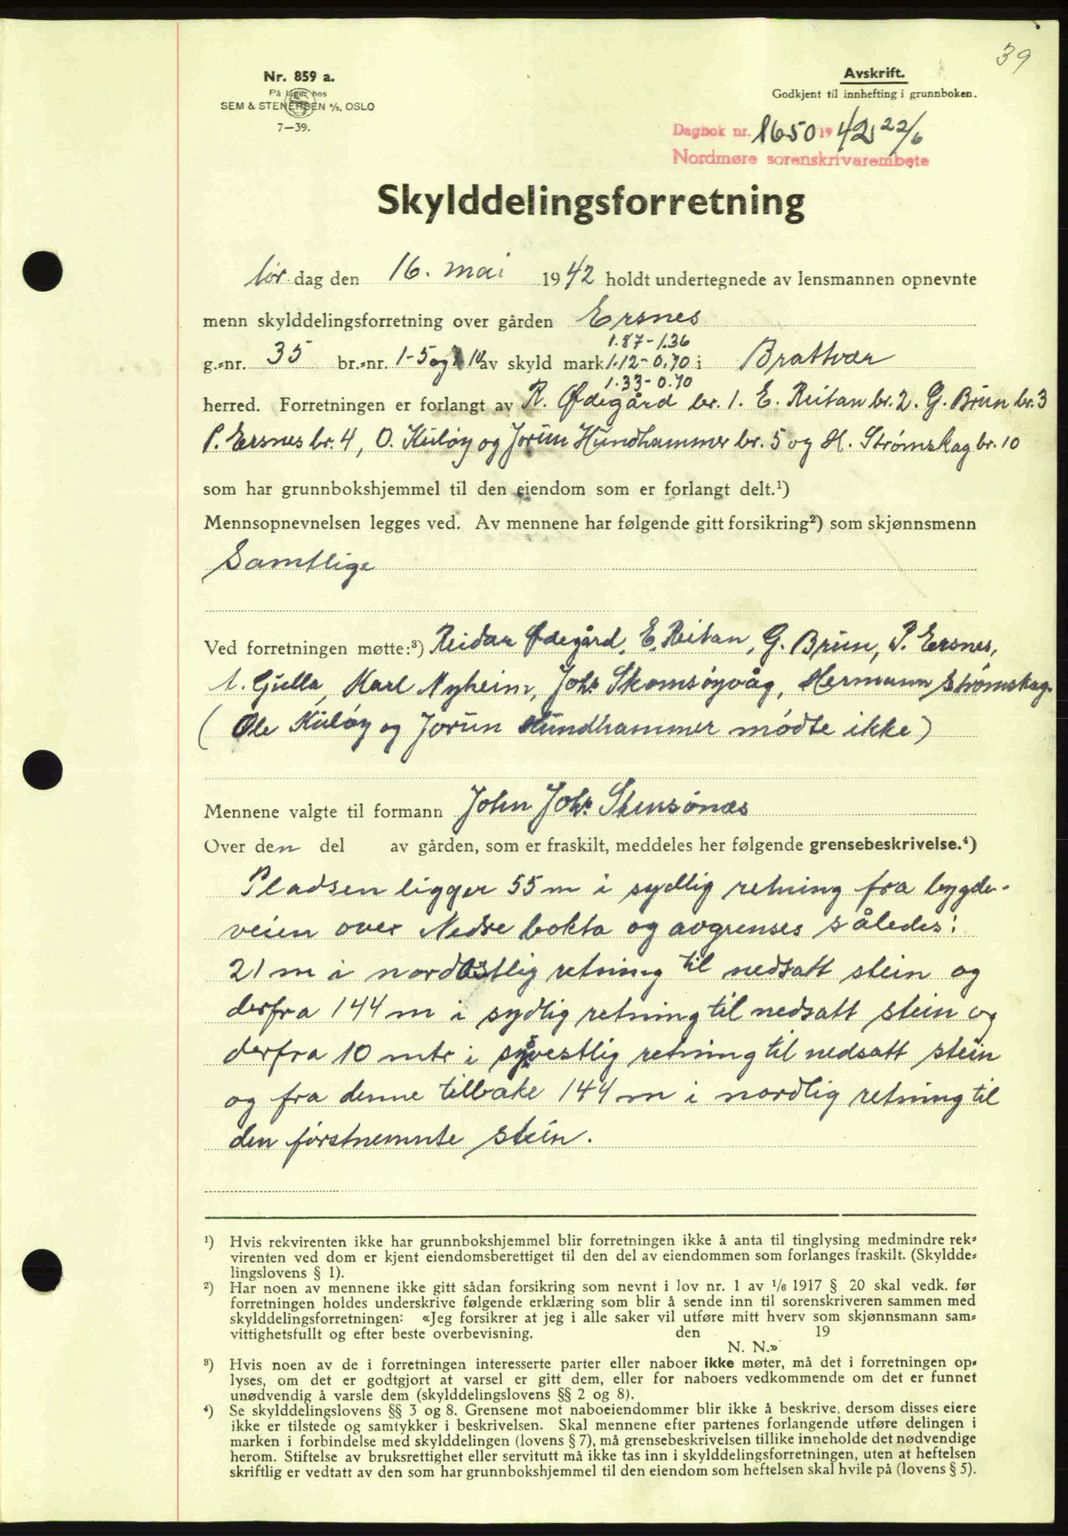 39
Nr. 859 a.
På lager hos
SEM & STENERSEN A/S, OSLO
7—39.
Avskrift.
Godkjent til innhefting i grunnboken.
Dagbok nr. 1650 1942 22/6
Nordmøre sorenskrivarembete
Skylddelingsforretning
lør dag den 16. mai 1942 holdt undertegnede av lensmannen opnevnte
menn skylddelingsforretning over gården Ersnes
1.87-1.36
g.-nr. 35 br.-nr. 1-5 og 10 av skyld mark 1.12-0.70 i Brattvær
1.33-0.70
herred. Forretningen er forlangt av R. Ødegård br. 1. E. Reitan br. 2. G. Brun br. 3
P. Ersnes br. 4, O. Kuløy og Jorun Hundhammer br. 5 og H. Strømskag br. 10
som har grunnbokshjemmel til den eiendom som er forlangt delt.¹)
Mennsopnevnelsen legges ved. Av mennene har følgende gitt forsikring²) som skjønnsmenn
Samtlige
Ved forretningen møtte:³) Reidar Ødegård, E. Reitan, G. Brun, P. Ersnes,
Gulla, Karl Nyheim, Johs Skomsøyvåg, Hermann Strømskag.
(Ole Kuløy og Jorun Hundhammer mødte ikke)
Mennene valgte til formann John Johs. Stensønæs
Over den del av gården, som er fraskilt, meddeles her følgende grensebeskrivelse.⁴)
Pladsen ligger 55 m i sydlig retning fra bygde-
veien over Nedre bokta og avgrenses således:
21 m i nordøstlig retning til nedsatt stein og
derfra 144 m i sydlig retning til nedsatt stein og
derfra 10 mtr i sydvestlig retning til nedsatt stein
og fra denne tilbake 144 m i nordlig retning til
den førstnemnte stein.
¹) Hvis rekvirenten ikke har grunnbokshjemmel blir forretningen ikke å anta til tinglysing medmindre rek-
virenten ved dom er kjent eiendomsberettiget til den del av eiendommen som forlanges fraskilt. (Skyldde-
lingslovens § 1).
²) Har noen av mennene ikke gitt sådan forsikring som nevnt i lov nr. 1 av 1/6 1917 § 20 skal vedk. før
forretningen holdes underskrive følgende erklæring som blir å sende inn til sorenskriveren sammen med
skylddelingsforretningen: «Jeg forsikrer at jeg i alle saker vil utføre mitt hverv som skjønnsmann sam-
vittighetsfullt og efter beste overbevisning. den 19
N. N.»
³) Hvis noen av de i forretningen interesserte parter eller naboer ikke møter, må det i forretningen op-
lyses, om det er godtgjort at varsel er gitt dem, eller for naboers vedkommende om det er funnet
unødvendig å varsle dem (skylddelingslovens §§ 2 og 8).
⁴) Se skylddelingslovens §§ 3 og 8. Grensene mot naboeiendommer blir ikke å beskrive, dersom disses eiere
ikke er tilstede og samtykker i beskrivelsen. Skal mennene efter partenes forlangende utføre delingen i
marken i forbindelse med skylddelingen (lovens § 7), må grensebeskrivelsen tillike inneholde det nødvendige
herom. Stiftelse av bruksrettighet eller servitutt må ikke tas inn i skylddelingsforretningen, uten at heftelsen
skriftlig er vedtatt av den som har grunnbokshjemmel til den eiendom som heftelsen skal hvile på (lovens § 5).